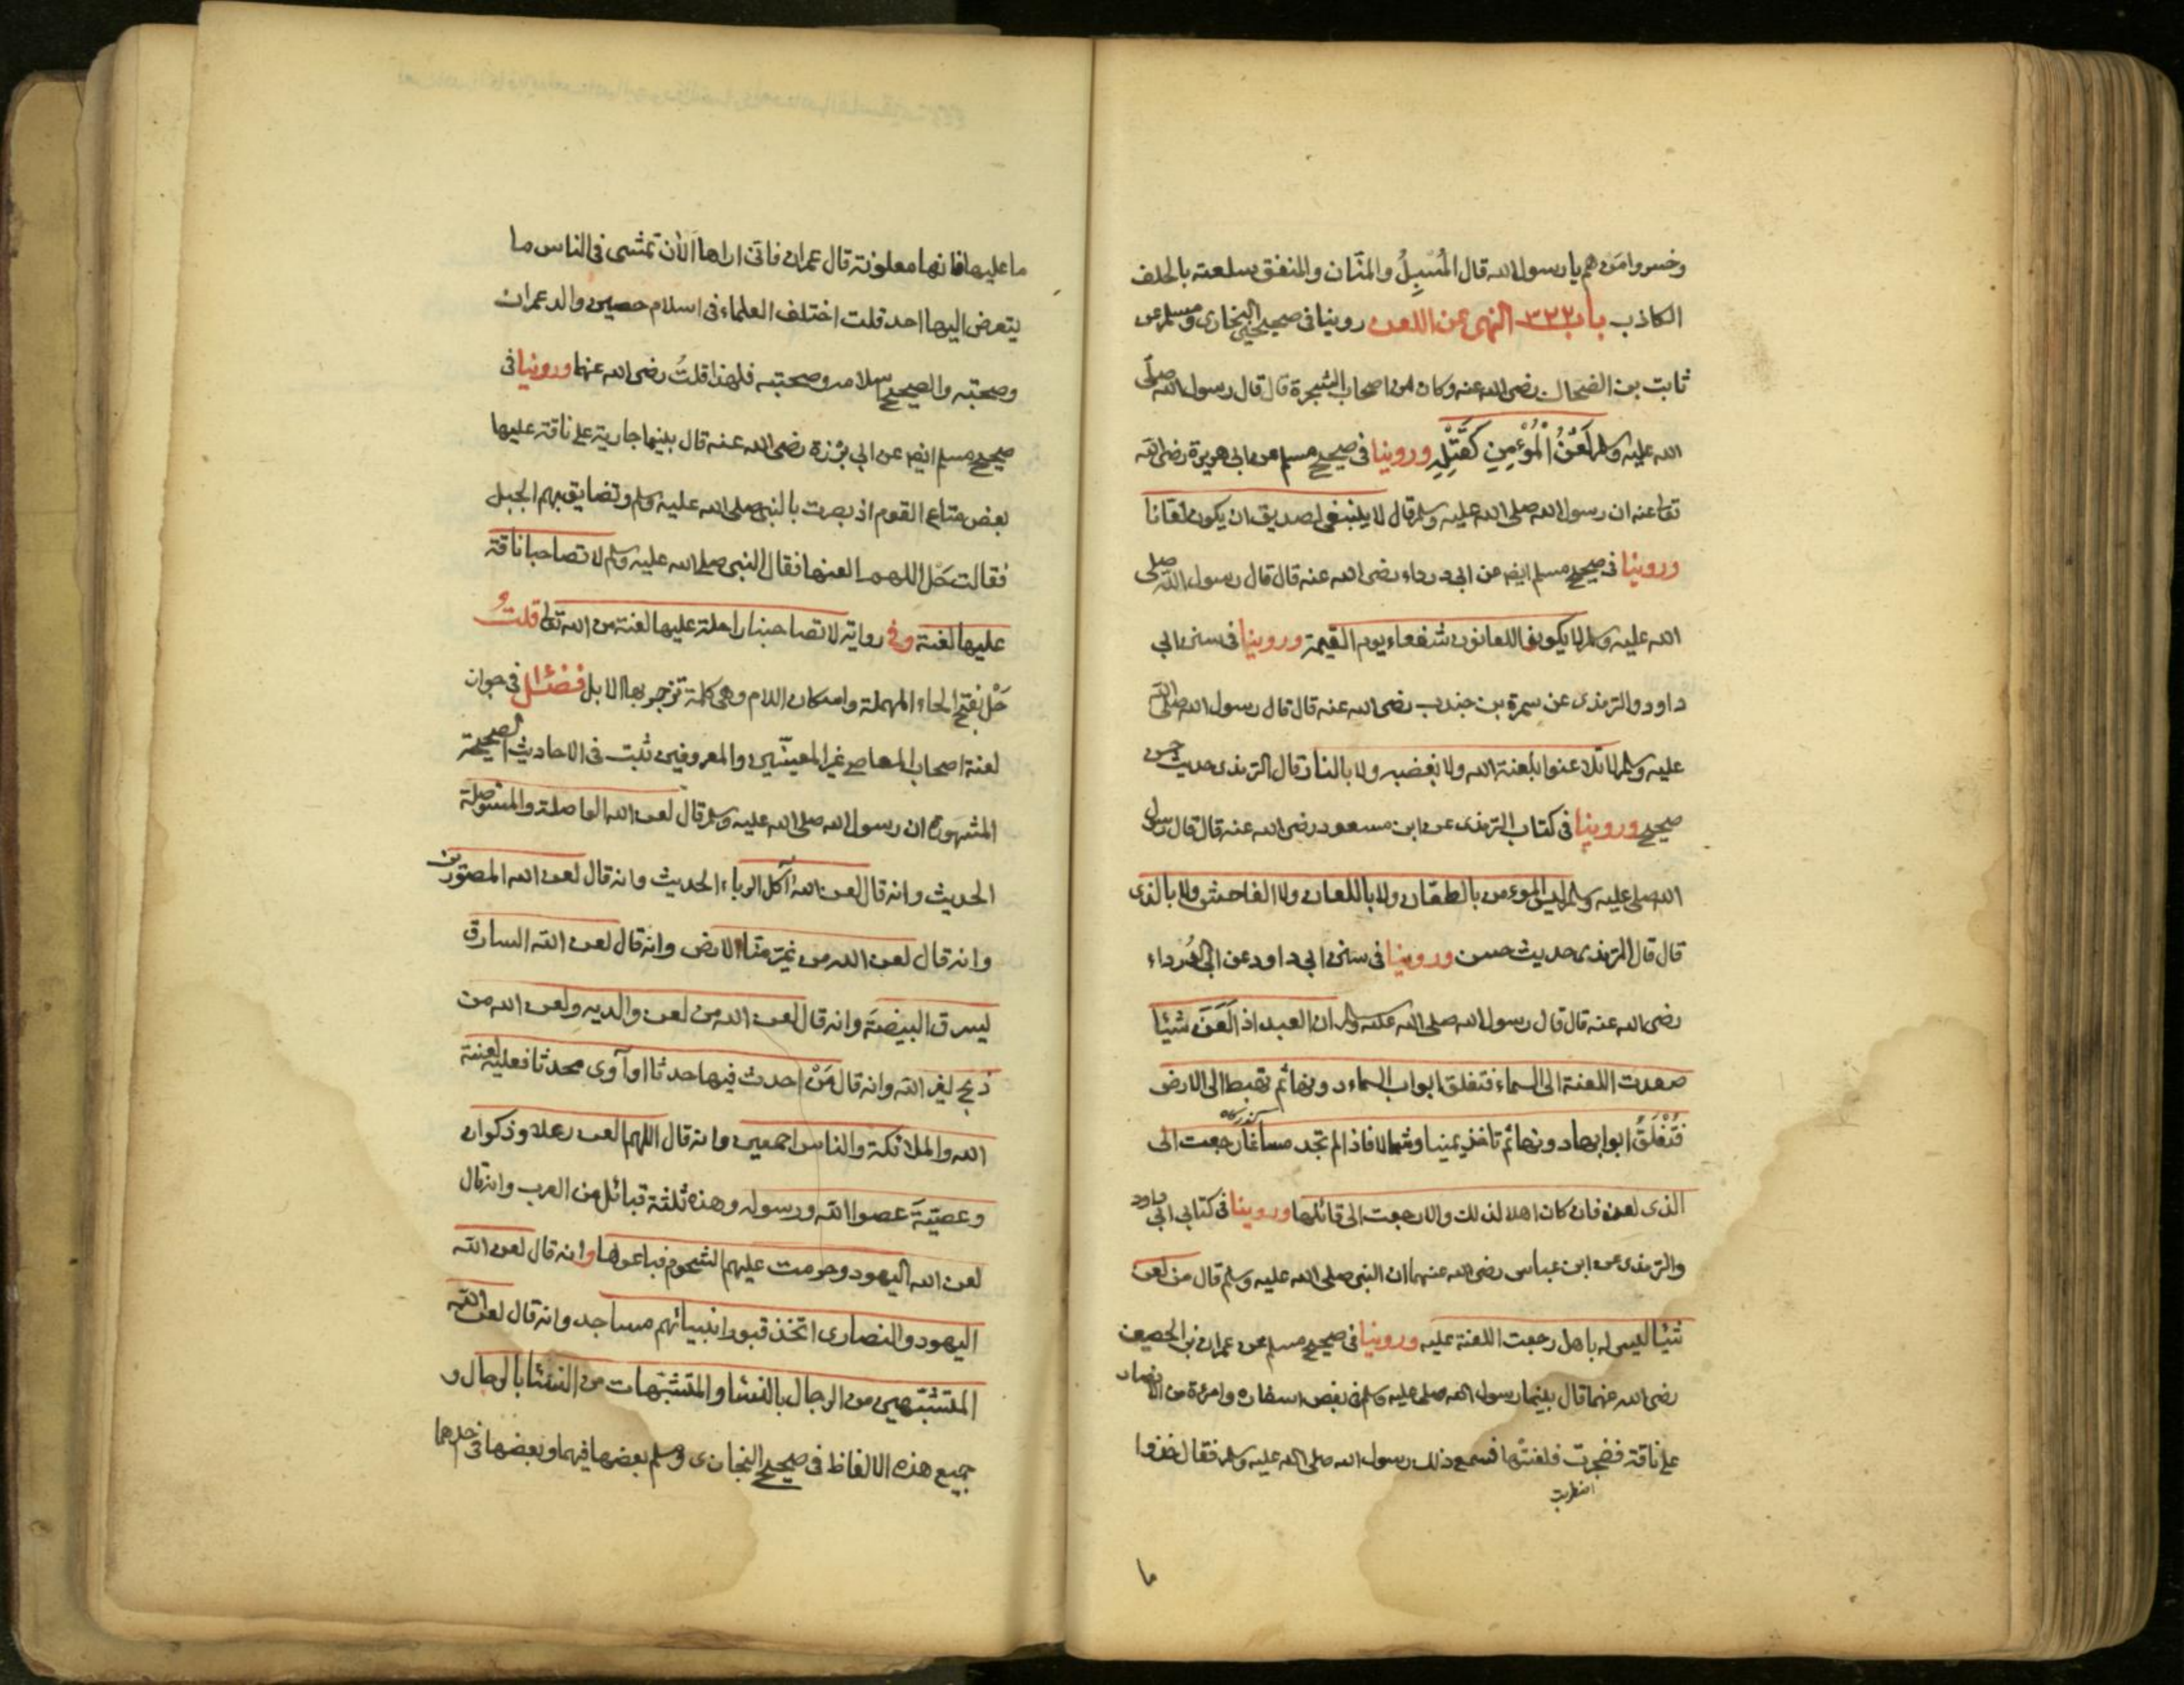 وخسروا من هم يا رسول الله قال المُسْبِلُ والمنّان والمنفق سلعته بالحلف
الكاذب باب ٣٢٢ النهى عن اللعن روينا فى صحيحى البخارى ومسلم عن
ثابت بن الضحاك رضى الله عنه وكان من اصحاب الشجرة قال قال رسول الله صلى
الله عليه وسلم لَعْنُ الْمُؤْمِنِ كَقَتْلِهِ وروينا فى صحيح مسلم عن ابى هريرة رضى الله
تعا عنه ان رسول الله صلى الله عليه وسلم قال لا ينبغى لصديق ان يكون لعّانا
وروينا فى صحيح مسلم ايضا عن ابى درداء رضى الله عنه قال قال رسول الله صلى
الله عليه وسلم لا يكون اللعانون شفعاء يوم القيمة وروينا فى سنن ابى
داود والترمذى عن سمرة بن جندب رضى الله عنه قال قال رسول الله صلى الله
عليه وسلم لا تلاعنوا بلعنة الله ولا بغضبه ولا بالنار قال الترمذى حديث حسن
صحيح وروينا فى كتاب الترمذى عن ابن مسعود رضى الله عنه قال قال رسول
الله صلى عليه وسلم ليس الموءمن بالطعّان ولا باللعان ولا الفاحش ولا بالذى
قال قال الترمذى حديث حسن وروينا فى سنن ابى داود عن ابى الدرداء
رضى الله عنه قال قال رسول الله صلى الله عليه وسلم ان العبد اذا لَعَنَ شيئا
صعدت اللعنة الى السماء فتغلق ابواب السماء دونها ثم تهبط الى الارض
فَتُغْلَقُ ابوابها دونها ثم تاخذ يمينا وشمالا فاذا لم تجد مساغا رجعت الى
الذى لعن فان كان اهلا لذلك والا رجعت الى قائلها وروينا فى كتابى ابى داود
والترمذى عن ابن عباس رضى الله عنهما ان النبى صلى الله عليه وسلم قال من لعن
شيئا ليس له باهل رجعت اللعنة عليه وروينا فى صحيح مسلم عن عمران بن الحصين
رضى الله عنهما قال بينما رسول الله صلى عليه وسلم فى بعض اسفاره وامرءة من الانصار
على ناقة فضجرت فلعنتها فسمع ذلك رسول الله صلى الله عليه وسلم فقال خذوا
ما
ما عليها فانها معلونة قال عمران فانى اراها الآن تمشى فى الناس ما
يتعرض اليها احد قلت اختلف العلماء فى اسلام حصين والد عمران
وصحبته والصحيح اسلامه وصحبته فلهذا قلتُ رضى الله عنهما وروينا فى
صحيح مسلم ايضا عن ابى برزة رضى الله عنه قال بينما جارية على ناقة عليها
بعض متاع القوم اذ بصرت بالنبى صلى الله عليه وسلم وتضايق بهم الجبل
فقالت حَل اللهم العنها فقال النبى صلى الله عليه وسلم لا تصاحبنا ناقة
عليها لعنة وفى رواية لا تصاحبنا راحلة عليها لعنة من الله تعا قلت و
حَلْ بفتح الحاء المهملة واسكان اللام وهى كلمة تزجر بها الابل فصل فى جواز
لعنة اصحاب المعاصى غير المعينين والمعروفين ثبت فى الاحاديث الصحيحة
المشهورة ان رسول الله صلى الله عليه وسلم قال لعن الله الواصلة والمستوصلة
الحديث وانه قال لعن الله آكل الرباء الحديث وانه قال لعن الله المصورين
وانه قال لعن الله من غيّر منار الارض وانه قال لعن الله السارق
ليسرق البيضة وانه قال لعن الله من لعن والديه ولعن الله من
ذبح لغير الله وانه قال مَنْ احدث فيها حدثا او آوى محدثا فعليه لعنة
الله والملائكة والناس اجمعين وانه قال اللهم العن رعلا وذكوان
وعصيّة عصوا الله ورسوله وهذه ثلثة قبائل من العرب وانه قال
لعن الله اليهود وحرمت عليهم الشحوم فباعوها وانه قال لعن الله
اليهود والنصارى اتخذ قبور انبيائهم مساجد وانه قال لعن الله
المتشبّهين من الرجال بالنساء والمتشبّهات من النساء بالرجال و
جميع هذه الالفاظ فى صحيح البخارى ومسلم بعضها فيهما وبعضها فى احدهما